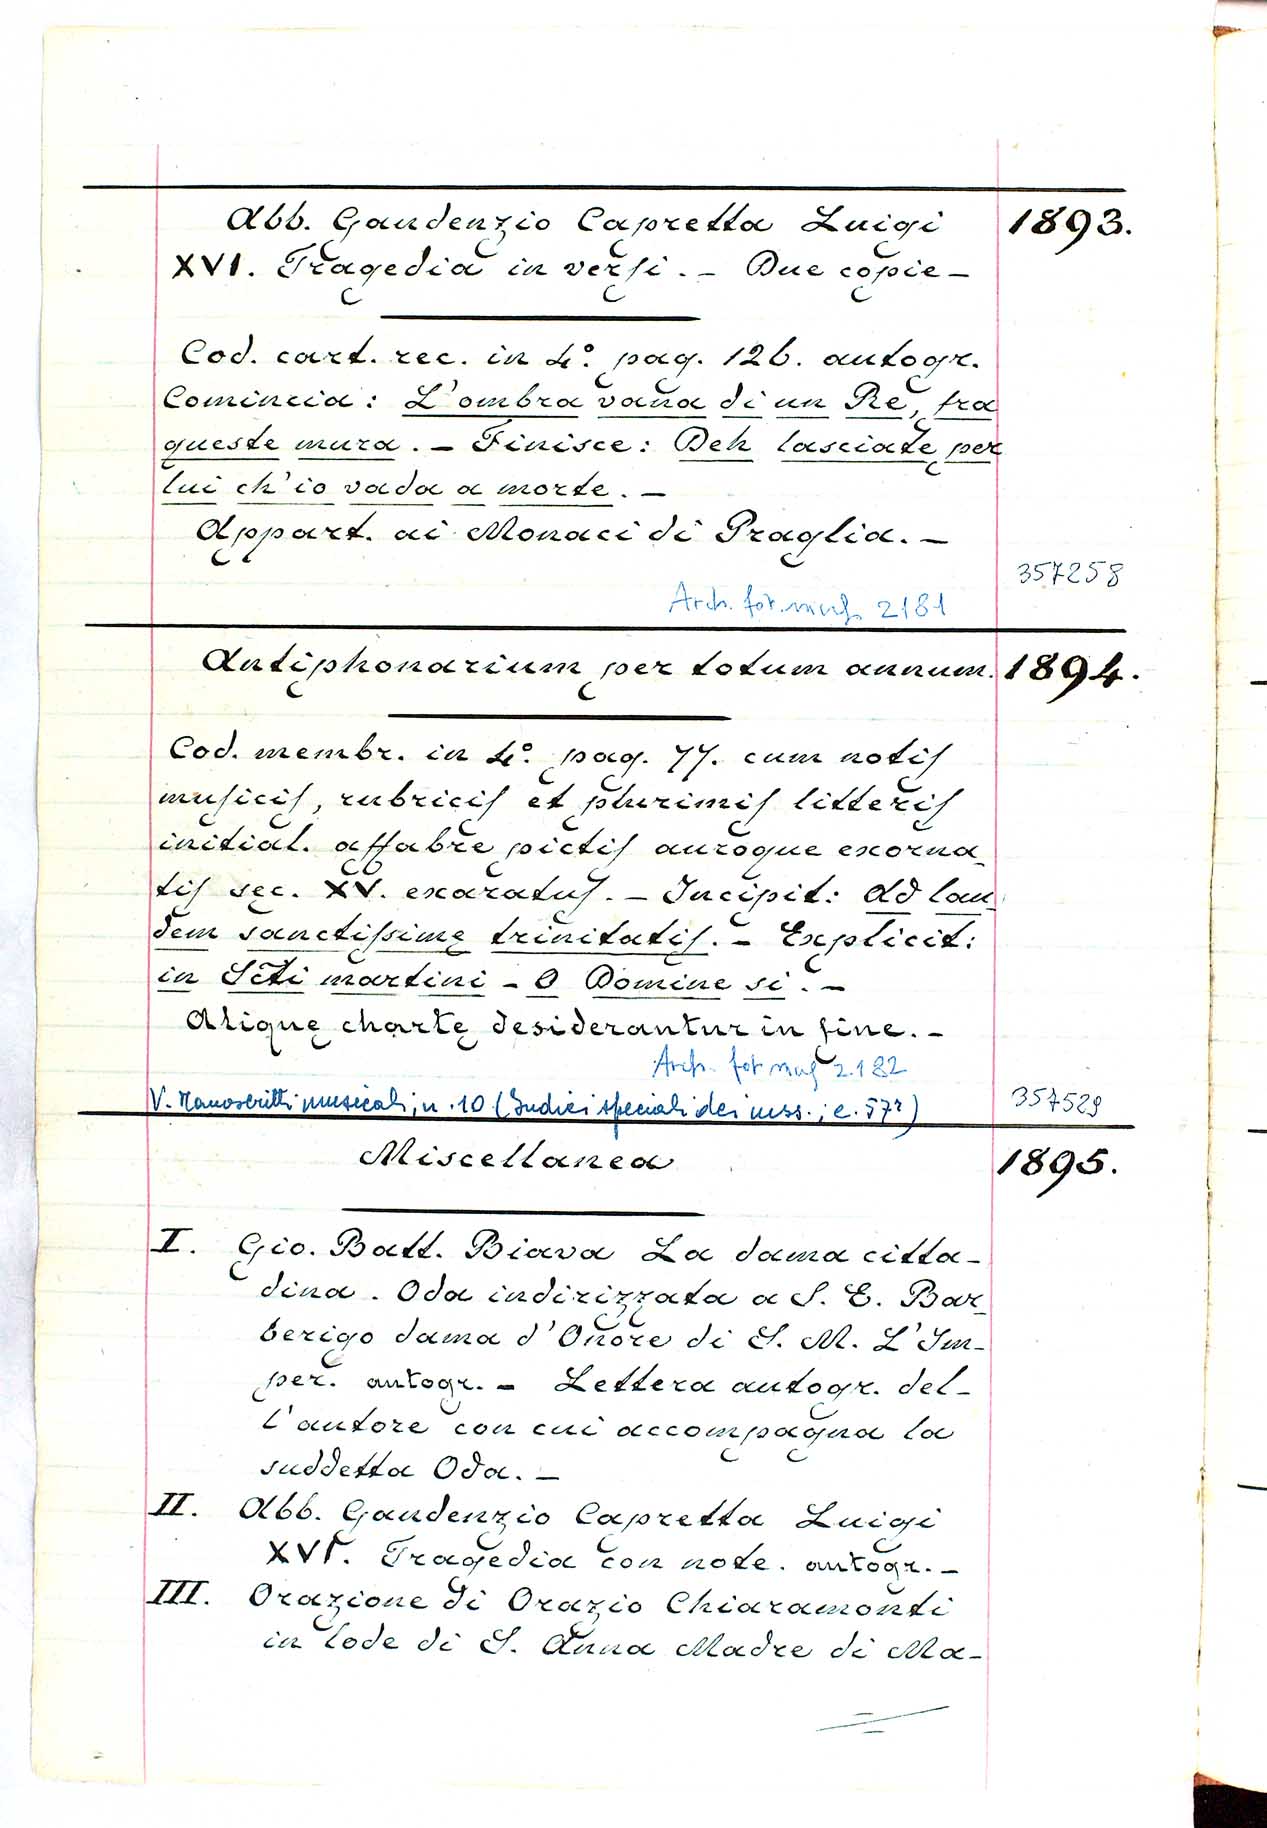 Abb. Gaudenzio Capretta Luigi 1893.
XVI. Tragedia in versi. – Due copie –
Cod. cart. rec. in 4.° pag. 126. autogr.
Comincia: L'ombra vana di un Re, fra
queste mura. – Finisce: Deh lasciate per
lui ch'io vada a morte. –
Appart. ai Monaci di Praglia. –
357258
Arch. fot. mus. 2181
Antiphonarium per totum annum. 1894.
Cod. membr. in 4.° pag. 77. cum notis
musicis, rubricis et plurimis litteris
initial. affabre pictis auroque exorna-
tis sec. XV. exaratus. – Incipit: Ad lau-
dem sanctissimę trinitatis. – Explicit:
in Scti martini – O Domine si. –
Aliquę chartę desiderantur in fine. –
Arch. fot mus 2.182
V. Manoscritti musicali, n. 10 (Indici speciali dei mss.; c. 57r) 357529
Miscellanea 1895.
I. Gio. Batt. Biava La dama citta-
dina. Oda indirizzata a S. E. Bar-
berigo dama d'Onore di S. M. L'Im-
per. autogr. – Lettera autogr. del-
l'autore con cui accompagna la
suddetta Oda. –
II. Abb. Gaudenzio Capretta Luigi
XVI. Tragedia con note. autogr. –
III. Orazione di Orazio Chiaramonti
in lode di S. Anna Madre di Ma-